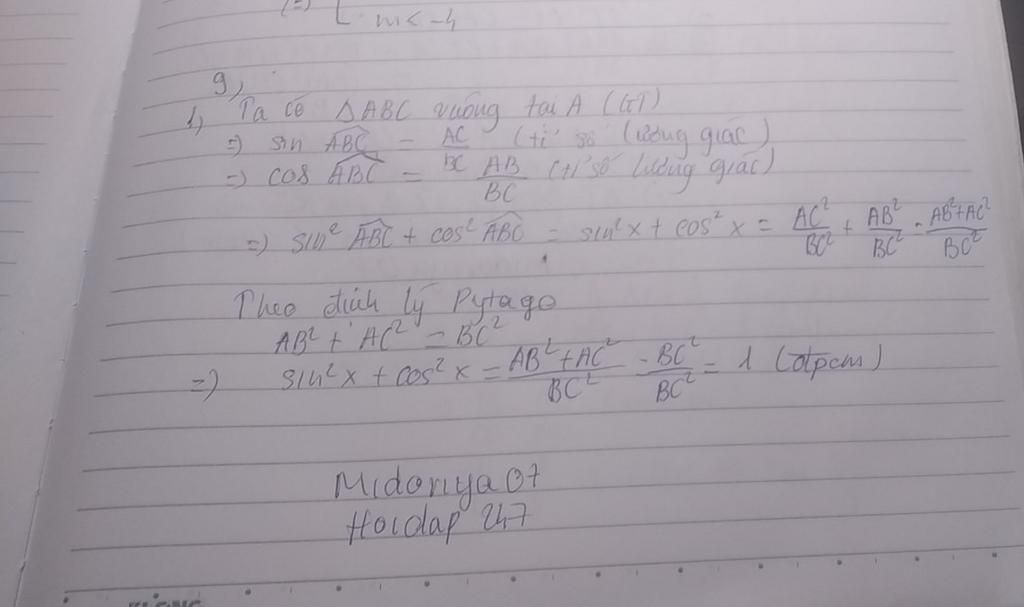 (=) [ m < -4
9,
1, Ta có △ABC vuông tại A (GT)
=) sin \widehat{ABC} = \frac{AC}{BC} (tỉ số lượng giác)
=) cos \widehat{ABC} = \frac{AB}{BC} (tỉ số lượng giác)
=) sin² \widehat{ABC} + cos² \widehat{ABC} = sin²x + cos²x = \frac{AC²}{BC²} + \frac{AB²}{BC²} = \frac{AB²+AC²}{BC²}
Theo định lý Pytago
AB² + AC² = BC²
=) sin²x + cos²x = \frac{AB²+AC²}{BC²} = \frac{BC²}{BC²} = 1 (đpcm)
Midoriya07
Hoidap 247